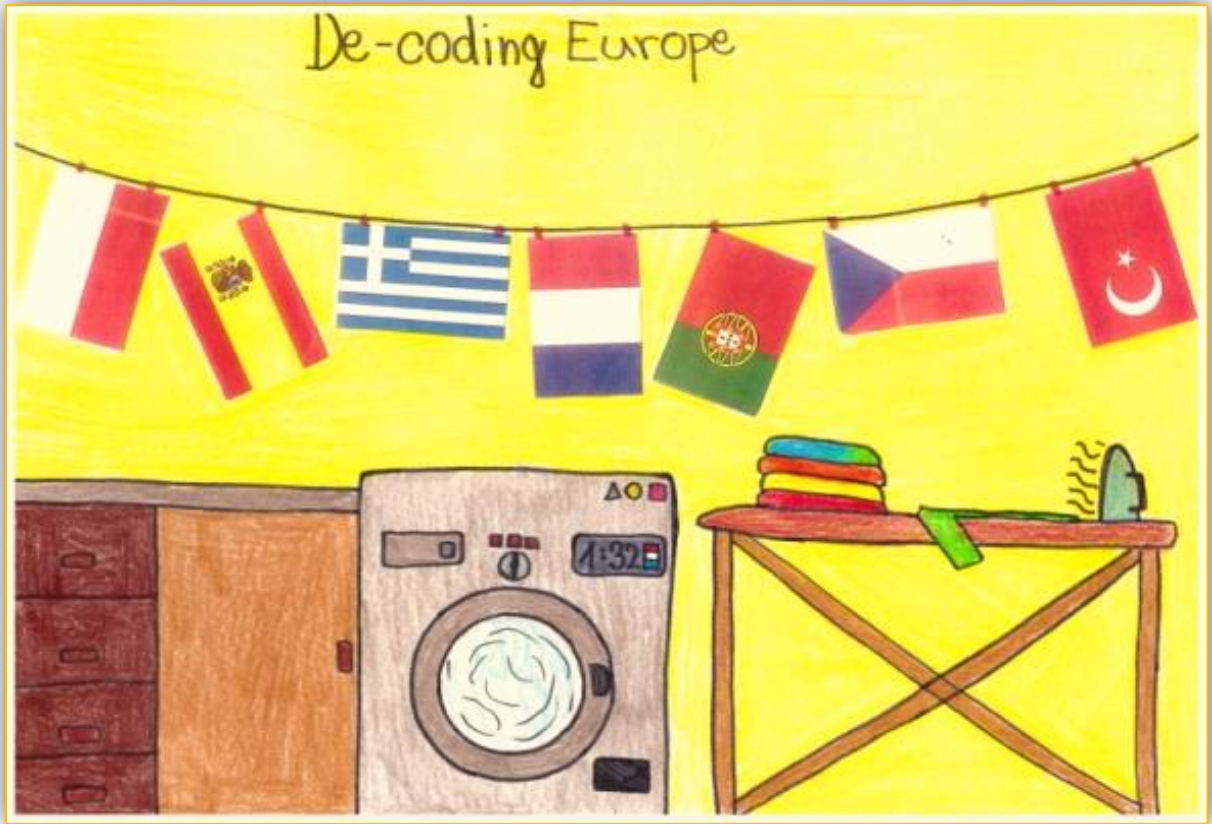 De-coding Europe
1:32